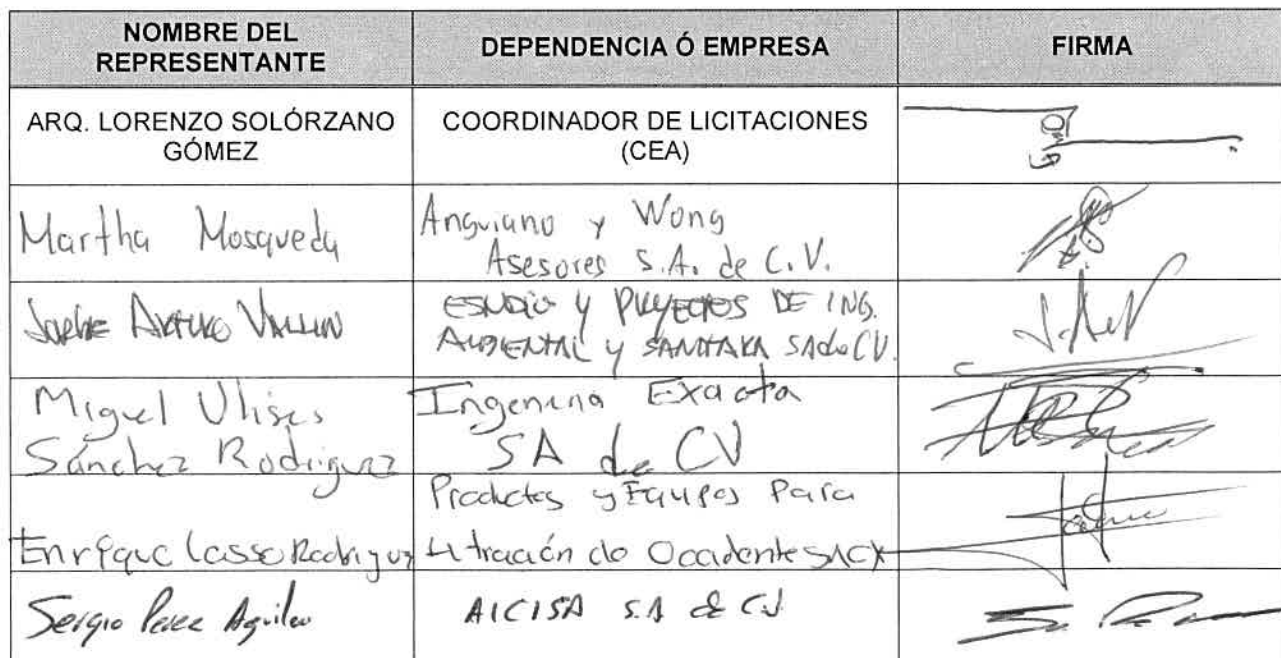 NOMBRE DEL
REPRESENTANTE
DEPENDENCIA Ó EMPRESA
FIRMA
ARQ. LORENZO SOLÓRZANO
GÓMEZ
COORDINADOR DE LICITACIONES
(CEA)
Martha Mosqueda
Anguiano y Wong
Asesores S.A. de C.V.
Jorge Arturo Vallin
ESTUDIO y PROYECTOS DE ING.
AMBIENTAL y SANITARIA SA de CV.
Miguel Ulises
Sánchez Rodriguez
Ingenieria Exacta
SA de CV
Enrique Rodriguez
Productos y Equipos Para
Filtración de Occidente
Sergio Perez Aguilar
AICISA S.A de C.V